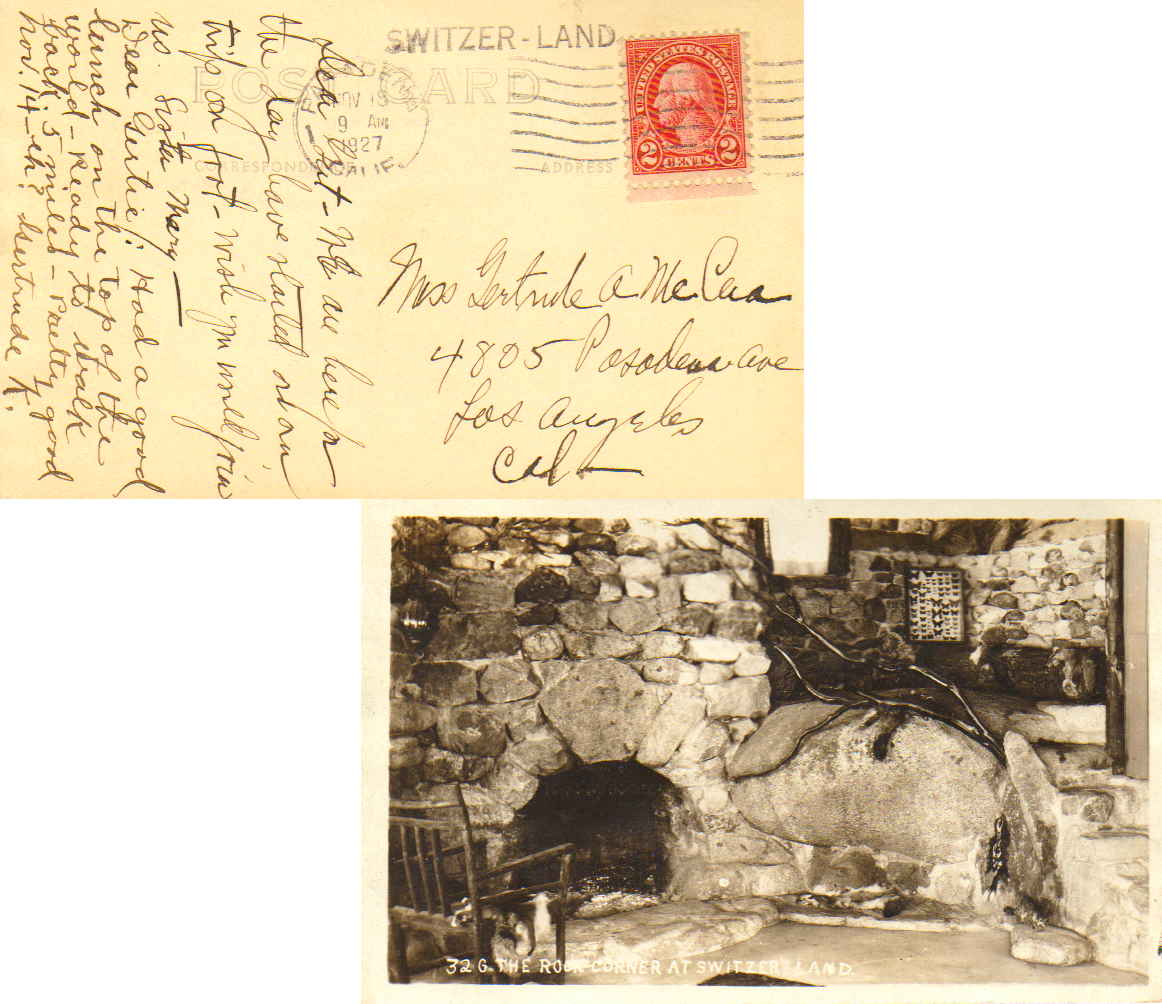 SWITZER-LAND
POST CARD
PASADENA
NOV 18
9 AM
1927
CALIF.
UNITED STATES POSTAGE
2 CENTS 2
CORRESPONDENCE
ADDRESS
Dear Gert - We are here for
the day have started on our
trip on foot - wish you would join
us. Sister Mary -
Dear Gertie: Had a good
lunch on the top of the
world - ready to walk
back. 5 miles - Pretty good
Nov. 14 - eh? Gertrude K.
Miss Gertrude A McCrea
4805 Pasadena ave
Los Angeles
Cal -
32 G. THE ROCK CORNER AT SWITZER-LAND.